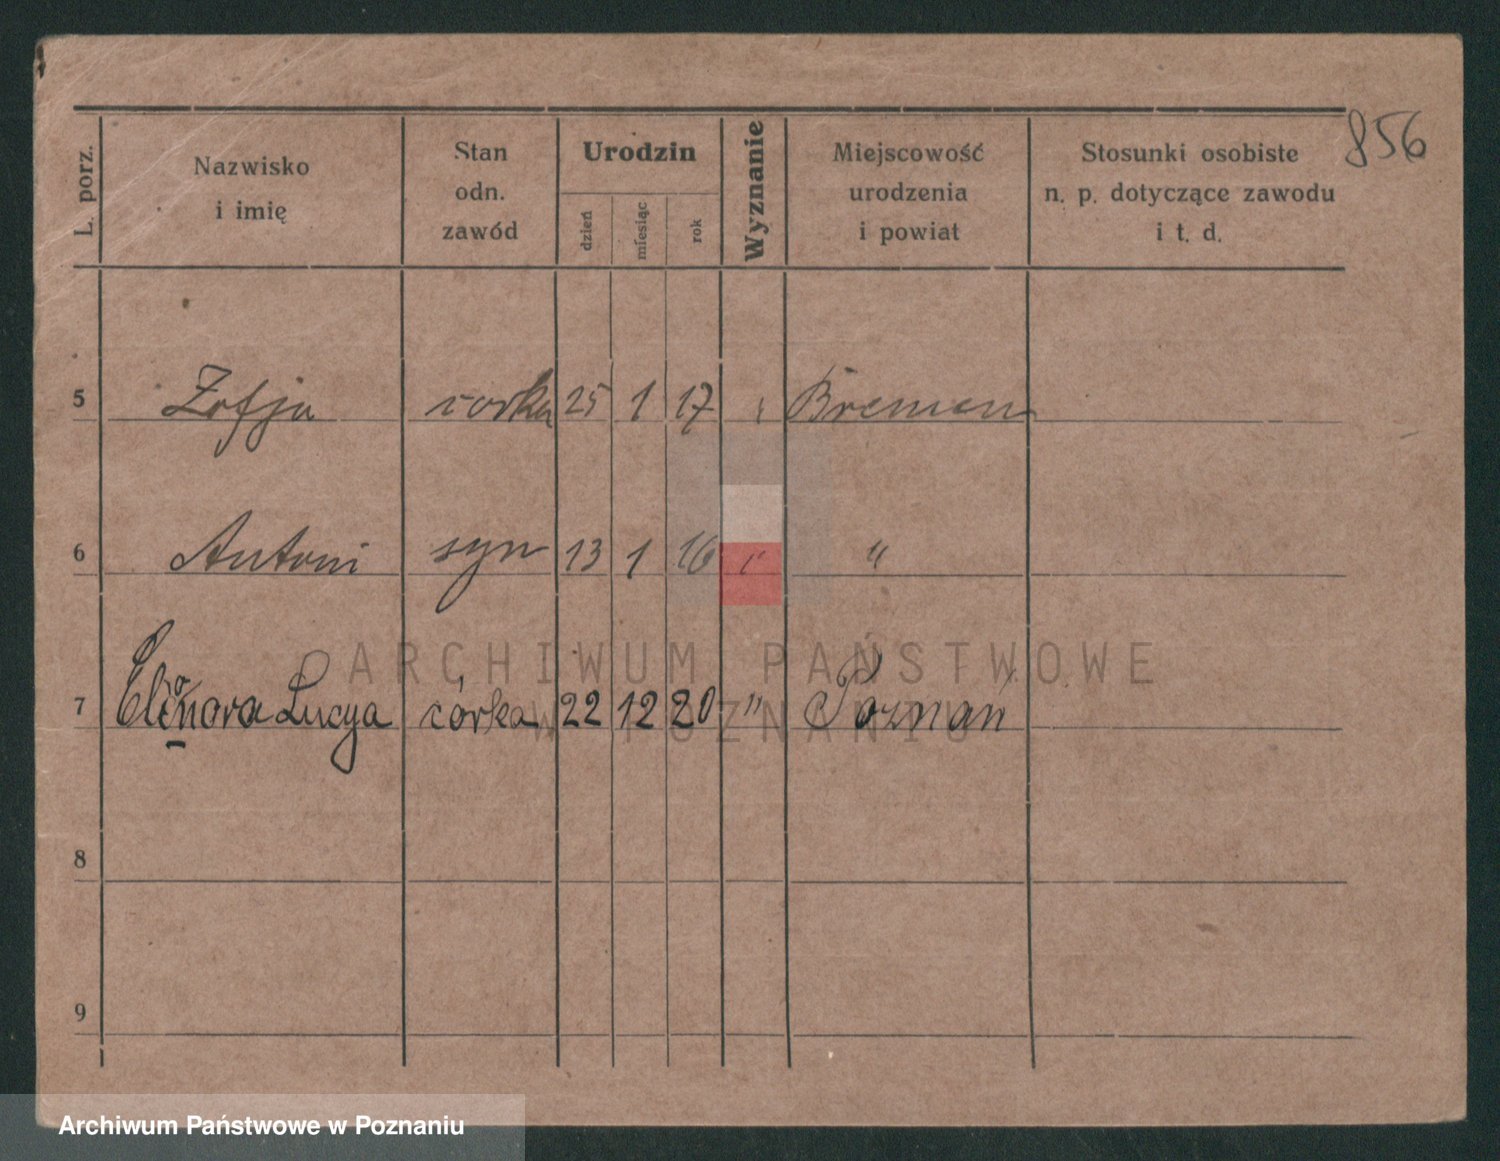 856
L. porz.
Nazwisko
i imię
Stan
odn.
zawód
Urodzin
dzień
miesiąc
rok
Wyznanie
Miejscowość
urodzenia
i powiat
Stosunki osobiste
n. p. dotyczące zawodu
i t. d.
5 Zofja corka 25 1 17 " Bremen
6 Antoni syn 13 1 16 " "
ARCHIWUM PAŃSTWOWE
7 Eleonora Lucya córka 22 12 20 " Poznań
W POZNANIU
8
9
Archiwum Państwowe w Poznaniu